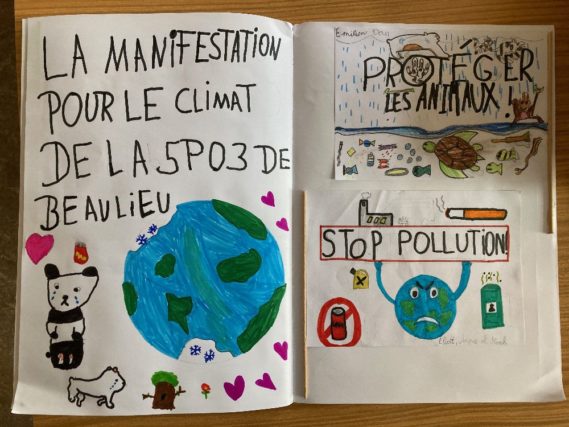 LA MANIFESTATION
POUR LE CLIMAT
DE LA 5P03 DE
BEAULIEU
PROTÉGER
LES ANIMAUX !
STOP POLLUTION!